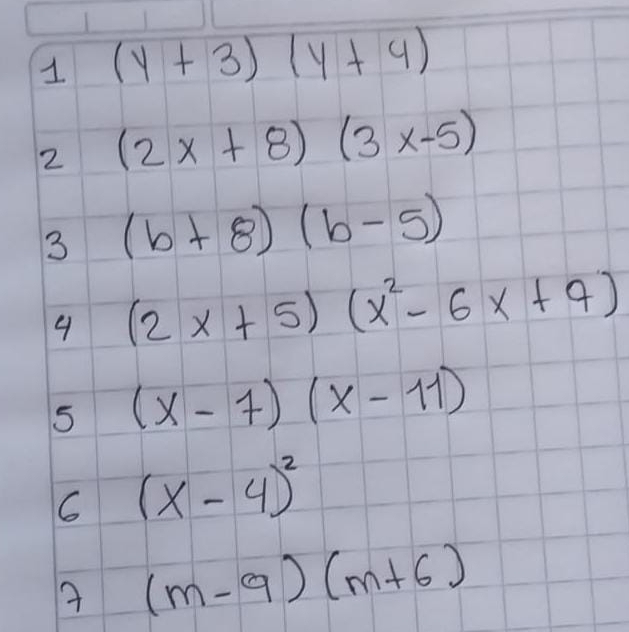 1 (y + 3) (y + 4)
2 (2x + 8) (3x-5)
3 (b + 8) (b - 5)
4 (2x + 5) (x² - 6x + 9)
5 (x - 7) (x - 11)
6 (x - 4)²
7 (m - 9) (m + 6)